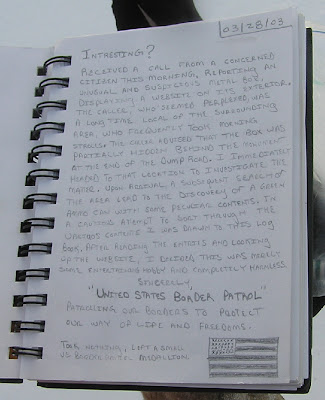 03/28/03
INTRESTING?
RECEIVED A CALL FROM A CONCERNED
CITIZEN THIS MORNING, REPORTING AN
UNUSUAL AND SUSPICIOUS METAL BOX,
DISPLAYING A WEBSITE ON ITS EXTERIOR.
THE CALLER, WHO SEEMED PERPLEXED, WAS
A LONG TIME LOCAL OF THE SURROUNDING
AREA, WHO FREQUENTLY TOOK MORNING
STROLLS. THE CALLER ADVISED THAT THE BOX WAS
PARTIALLY HIDDEN BEHIND THE MONUMENT
AT THE END OF THE DUMP ROAD. I IMMEDIATELY
HEADED TO THAT LOCATION TO INVESTIGATE THE
MATTER. UPON ARRIVAL, A SUBSEQUENT SEARCH OF
THE AREA LEAD TO THE DISCOVERY OF A GREEN
AMMO CAN WITH SOME PECULIAR CONTENTS. IN
A CAUTIOUS ATTEMPT TO SORT THROUGH THE
VARIOUS CONTENTS I WAS DRAWN TO THIS LOG
BOOK. AFTER READING THE ENTRIES AND LOOKING
UP THE WEBSITE, I DECIDED THIS WAS MERELY
SOME ENTERTAINING HOBBY AND COMPLETELY HARMLESS.
SINCERELY,
"UNITED STATES BORDER PATROL"
PATROLLING OUR BORDERS TO PROTECT
OUR WAY OF LIFE AND FREEDOMS.
TOOK NOTHING, LEFT A SMALL
US BORDER PATROL MEDALLION.